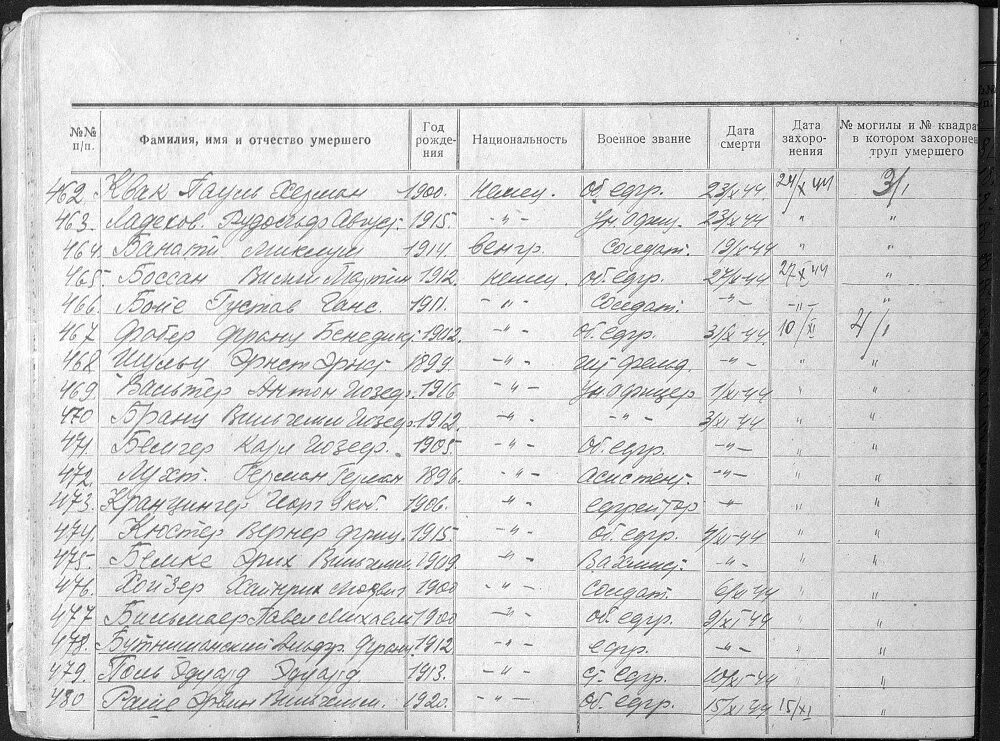 №№ п/п. Фамилия, имя и отчество умершего Год рожде- ния Национальность Военное звание Дата смерти Дата захоро- нения № могилы и № квадрат в котором захоронен труп умершего
462. Квак Пауль Херман 1900. немец. об. ефр. 23/X-44 24/X 44 3/1
463. Ладеков. Рудольф Август 1915. -"- Ун. офиц. 23/X-44 " "
464. Банати Миклуш 1914. венгр. солдат. 19/X-44 " "
465. Боссан Вильгельм Мартин 1912. немец. об. ефр. 27/X-44 27/X 44 "
466. Бойе Густав Ганс. 1911. -"- солдат. -"- -"- "
467 Фабер Франц Бенедикт 1912. -"- об. ефр. 31/X-44. 10/XI 4/1
468. Шульц Эрнст Эрнст 1899. -"- -"- "
469. Вальтер Антон Иозеф. 1916 -"- Ун. офицер 1/XI-44 " "
470 Бранц Вильгельм Иозеф 1912. -"- -"- 3/XI-44 " "
471. Бемгер Карл Иозеф. 1905. -"- об. ефр. -"- " "
472. Герман Герман 1896. -"- асистент. -"- " "
473. Кранцингер Георг Якоб 1906. -"- ефрейтор -"- " "
474. Кюстер Вернер Фриц. 1915. -"- об. ефр. /XI-44 " "
475. Бемке Эрих Вильгельм 1909. -"- Вахмист. -"- " "
476. Хойзер Хайнрих Людвиг 1900 -"- солдат 6/XI 44 " "
477 Бильмаер Павел Михаель 1900 -"- об. ефр. 9/XI 44 " "
478. Франц 1912 -"- ефр. -"- " "
479. Поль Эдуард Эдуард 1913. -"- ст. ефр. 10/XI-44 " "
480 Раше Эрвин Вильгельм. 1920. -"- об. ефр. 15/XI 44 15/XI "